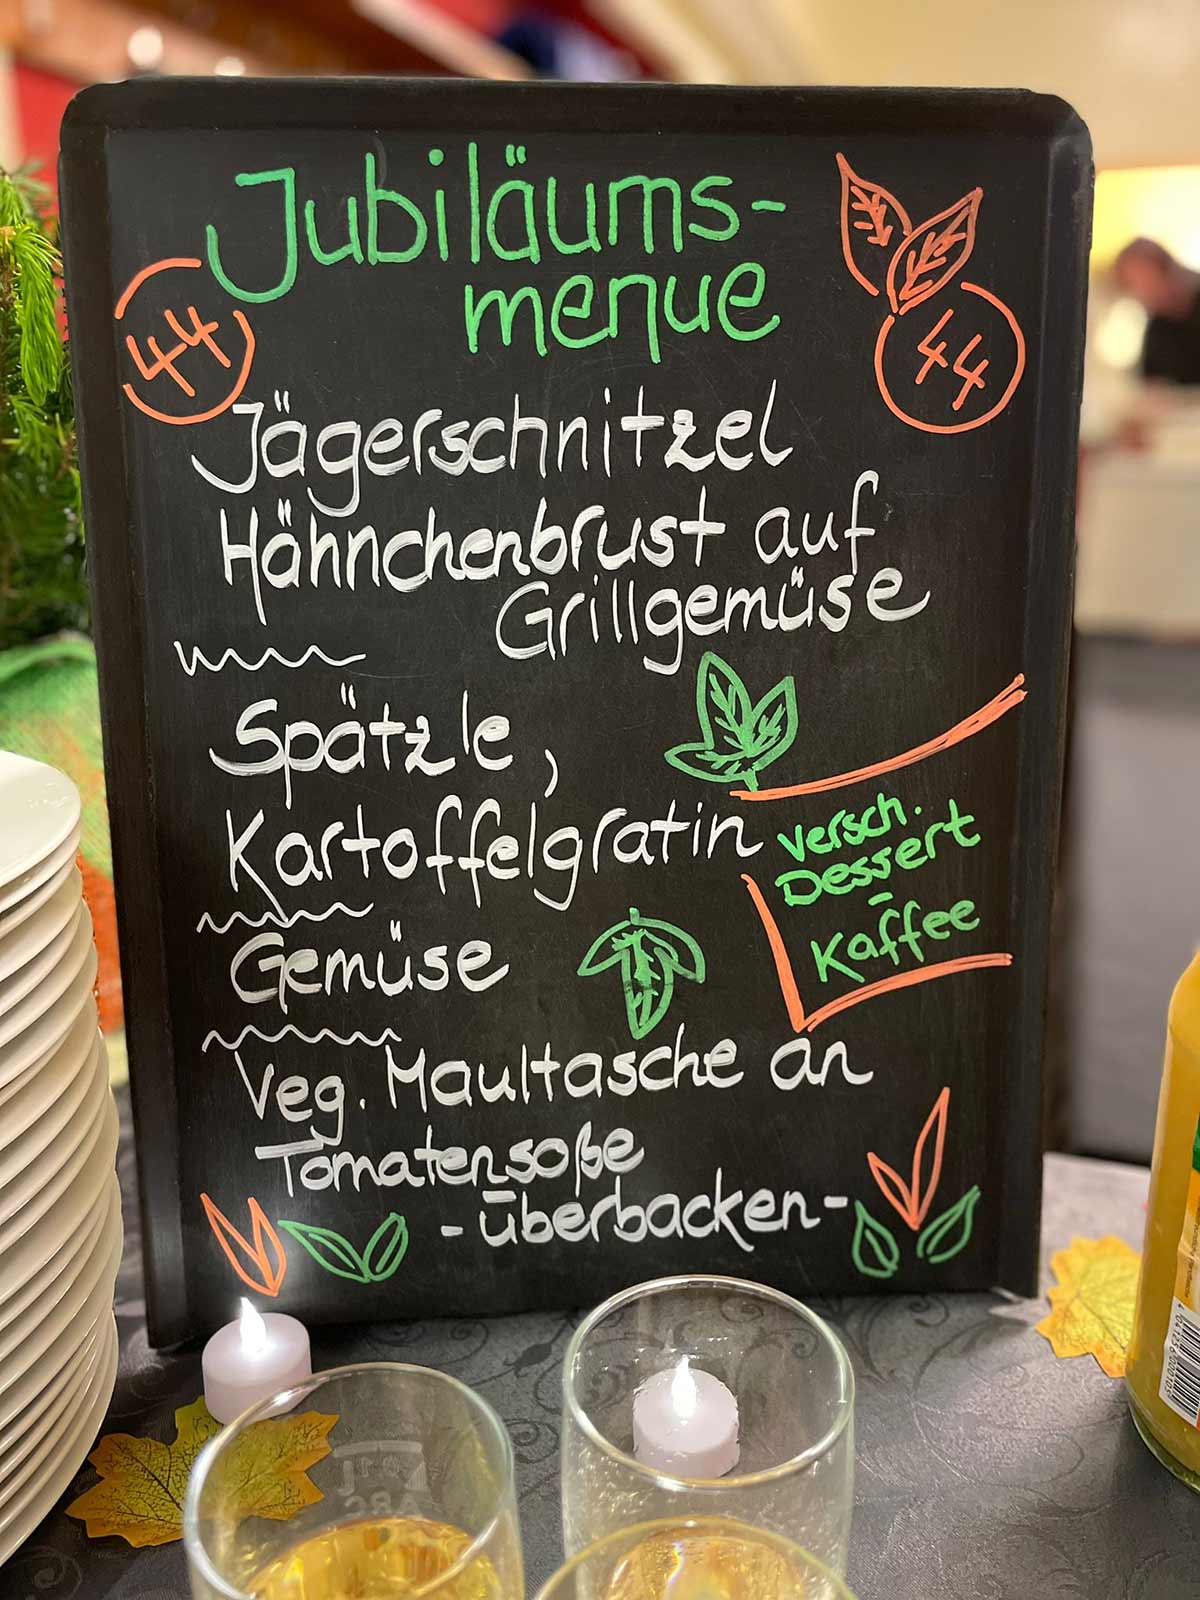 Jubiläums-
menue
44
44
Jägerschnitzel
Hähnchenbrust auf
Grillgemüse
Spätzle,
Kartoffelgratin
Gemüse
versch.
Dessert
-
Kaffee
Veg. Maultasche an
Tomatensoße
-überbacken-